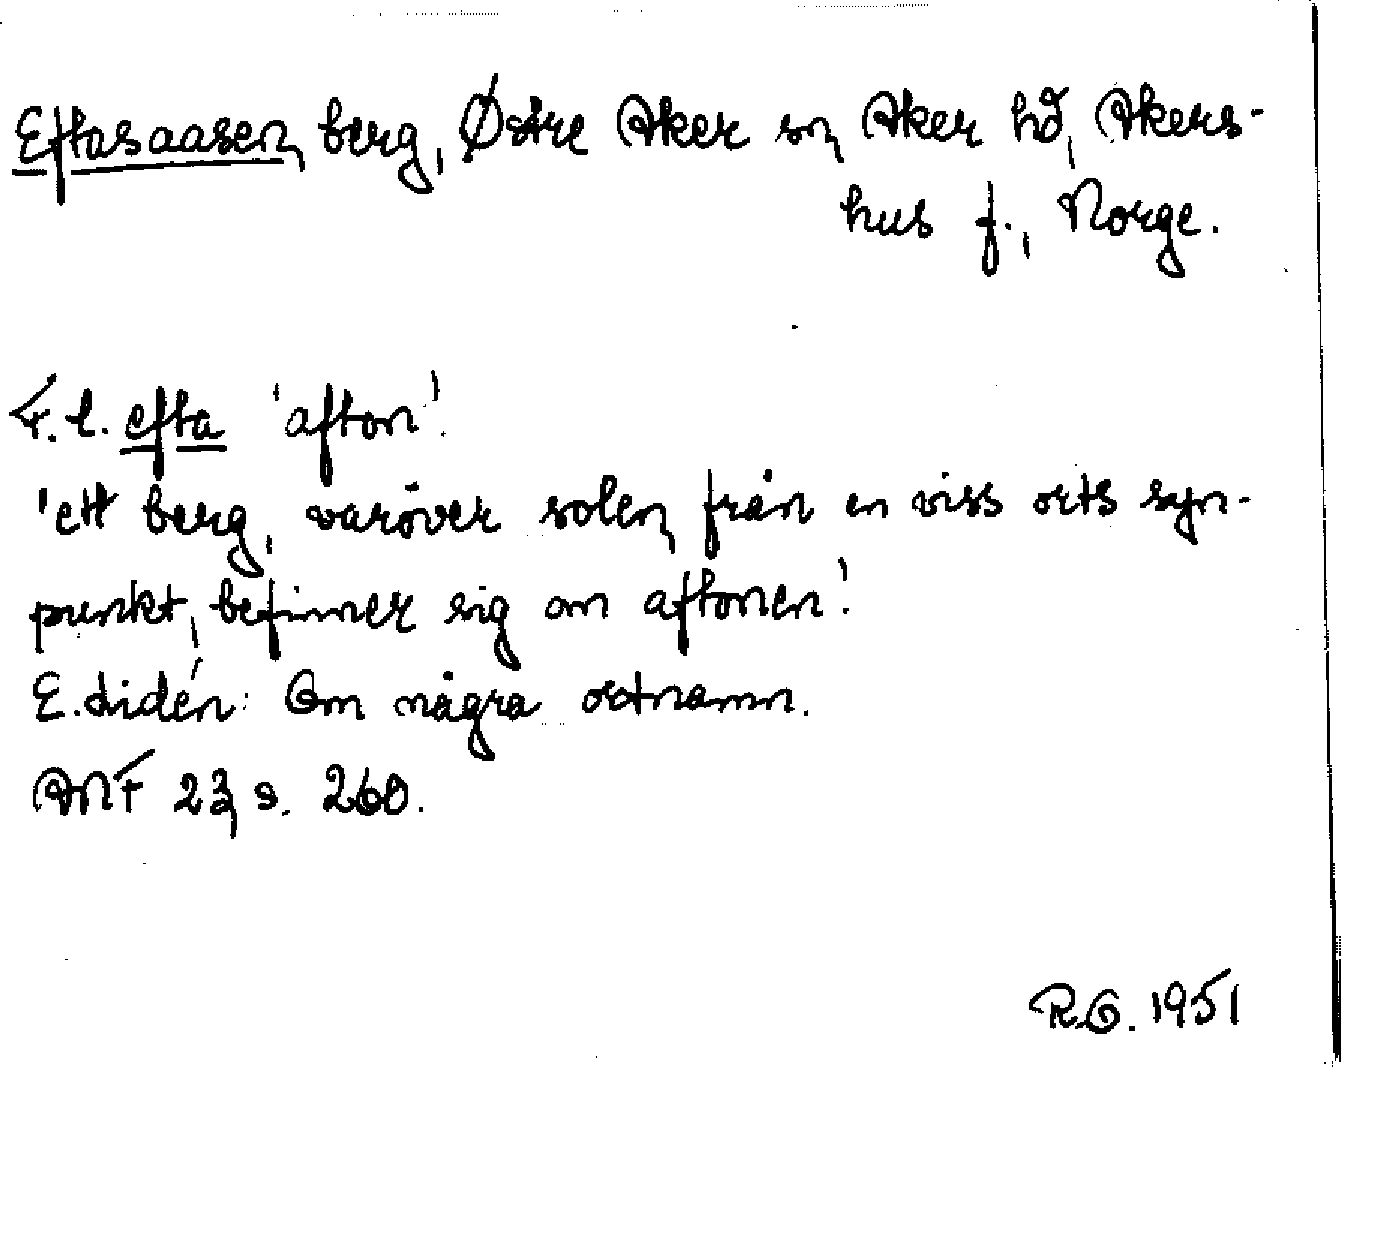 Eftasaasen, berg, Østre Aker sn, Aker hd, Akers-
hus f., Norge.
F.l. efta 'afton'.
'ett berg, varöver solen, från en viss orts syn-
punkt, befinner sig om aftonen'.
E. Lidén: Om några ortnamn.
ANF 23, s. 260.
R.G. 1951